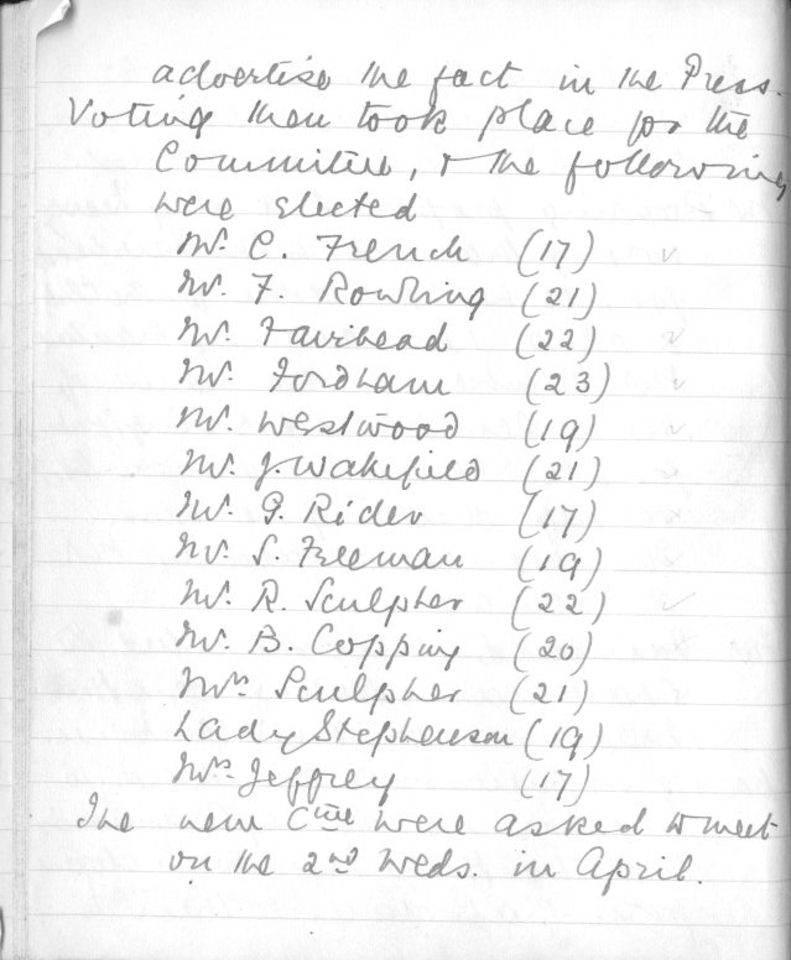 advertise the fact in the Press.
Voting then took place for the
Committee, & the following
were elected
Mr. C. French (17)
Mr. F. Rowling (21)
Mr. Fairhead (22)
Mr. Fordham (23)
Mr. Westwood (19)
Mr. J. Wakefield (21)
Mr. G. Rider (17)
Mr. S. Freeman (19)
Mr. R. Sculpher (22)
Mr. B. Copping (20)
Mrs Sculpher (21)
Lady Stephenson (19)
Mrs. Jeffrey (17)
The new Cttee were asked to meet
on the 2nd Weds. in April.